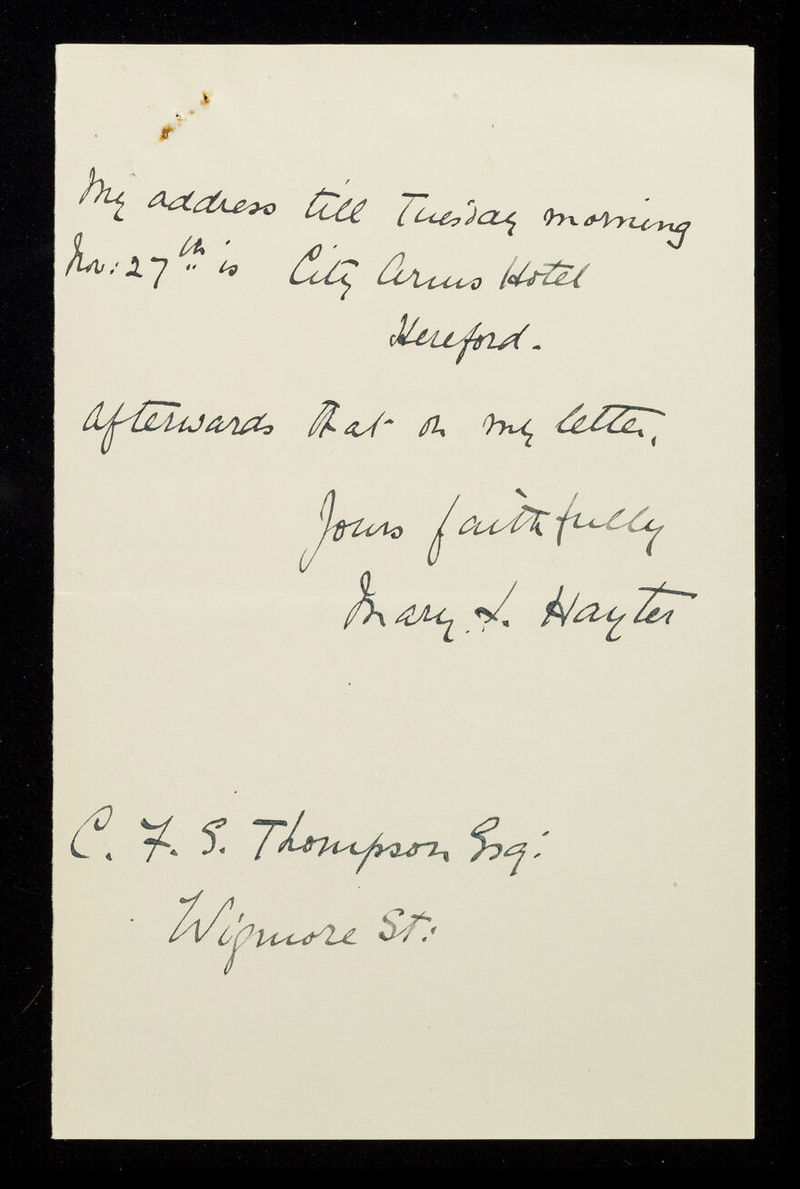 My address till Tuesday morning
Nov: 27th is City Arms Hotel
Hereford.
Afterwards that on my letter.
Yours faithfully
Mary L. Hayter
C. F. S. Thompson Esq:
Wigmore St: